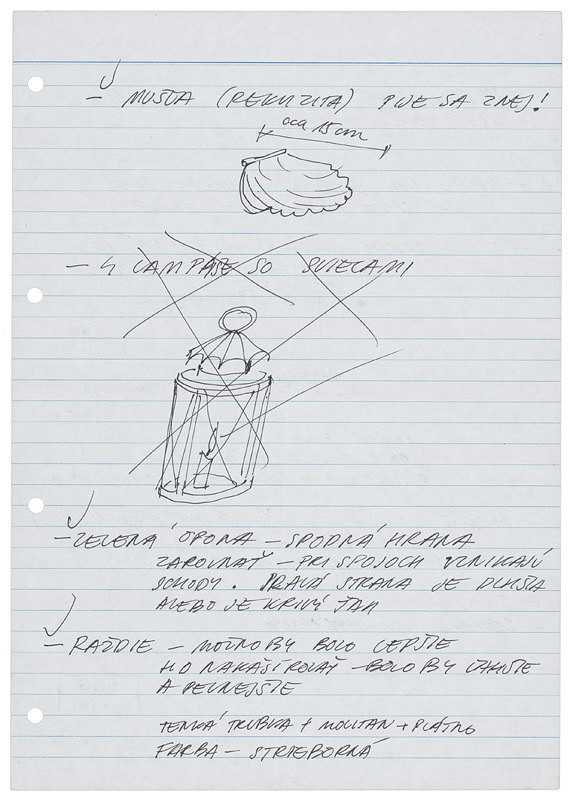 – MUŠĽA (REKVIZITA) PIJE SA Z NEJ!
cca 15 cm
– 4 LAMPÁŠE SO SVIECAMI
– ZELENÁ OPONA – SPODNÁ HRANA
ZAROVNAŤ – PRI SPOJOCH VZNIKAJÚ
SCHODY. PRAVÁ STRANA JE DLHŠIA
ALEBO JE KRIVÝ ŤAH
– RAŽDIE – MOŽNO BY BOLO LEPŠIE
HO NAKAŠÍROVAŤ – BOLO BY ĽAHŠIE
A PEVNEJŠIE
TENKÁ TRUBKA + MOLITAN + PLÁTNO
FARBA – STRIEBORNÁ